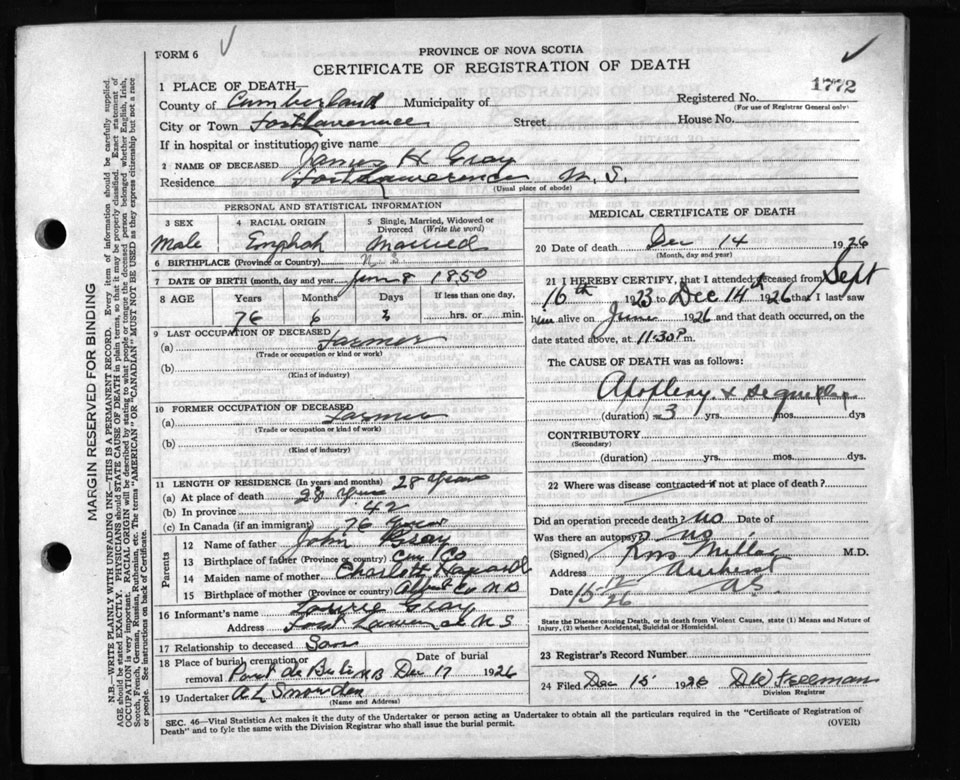 FORM 6
PROVINCE OF NOVA SCOTIA
CERTIFICATE OF REGISTRATION OF DEATH
1772
1 PLACE OF DEATH
County of Cumberland Municipality of
Registered No.
(For use of Registrar General only)
City or Town Fort Lawrence Street House No.
If in hospital or institution give name
2 NAME OF DECEASED James H Gray
Residence Fort Lawrence N. S.
(Usual place of abode)
PERSONAL AND STATISTICAL INFORMATION
3 SEX
Male
4 RACIAL ORIGIN
English
5 Single, Married, Widowed or Divorced (Write the word)
Married
6 BIRTHPLACE (Province or Country)
7 DATE OF BIRTH (month, day and year) 8 1850
8 AGE Years Months Days If less than one day,
76 6 hrs. or min.
9 LAST OCCUPATION OF DECEASED
(a) Farmer
(Trade or occupation or kind or work)
(b)
(Kind of industry)
10 FORMER OCCUPATION OF DECEASED
(a) Farmer
(Trade or occupation or kind of work)
(b)
(Kind of industry)
11 LENGTH OF RESIDENCE (In years and months) 28 Years
(a) At place of death 28 Years
(b) In province 42
(c) In Canada (if an immigrant) 76 Years
Parents
12 Name of father John Gray
13 Birthplace of father (Province or country) Co
14 Maiden name of mother Charlott
15 Birthplace of mother (Province or country) Albert Co N B
16 Informant's name Gray
Address Fort Lawrence N S
17 Relationship to deceased Son
18 Place of burial, cremation or removal Point de Bute N B
Date of burial Dec 17 1926
19 Undertaker A L Snowden
(Name and Address)
MEDICAL CERTIFICATE OF DEATH
20 Date of death Dec 14 1926
(Month, day and year)
21 I HEREBY CERTIFY, that I attended deceased from Sept
16th 1923 to Dec 14th 1926 that I last saw
him alive on June 1926 and that death occurred, on the
date stated above, at 11.30 P.
The CAUSE OF DEATH was as follows:
Apoplexy & sequellae
(duration) 3 yrs. mos. dys
CONTRIBUTORY
(Secondary)
(duration) yrs. mos. dys.
22 Where was disease contracted if not at place of death?
Did an operation precede death? no Date of
Was there an autopsy? no
(Signed) Ross Millar M.D.
Address Amherst
Date 15 12 26 N.S.
State the Disease causing Death, or in death from Violent Causes, state (1) Means and Nature of Injury, (2) whether Accidental, Suicidal or Homicidal.
23 Registrar's Record Number
24 Filed Dec 15 1926 D W Freeman
Division Registrar
SEC. 46—Vital Statistics Act makes it the duty of the Undertaker or person acting as Undertaker to obtain all the particulars required in the "Certificate of Registration of
Death" and to fyle the same with the Division Registrar who shall issue the burial permit.
(OVER)
MARGIN RESERVED FOR BINDING
N.B.—WRITE PLAINLY WITH UNFADING INK—THIS IS A PERMANENT RECORD. Every item of information should be carefully supplied.
AGE should be stated EXACTLY. PHYSICIANS should STATE CAUSE OF DEATH in plain terms, so that it may be properly classified. Exact statement of
OCCUPATION is very important. RACIAL ORIGIN will be described by stating to what people or tongue the deceased person belonged whether English, Irish,
Scotch, French, German, Russian, Ruthenian, etc. The terms "AMERICAN" OR "CANADIAN" MUST NOT BE USED as they express citizenship but not a race
or people. See instructions on back of Certificate.